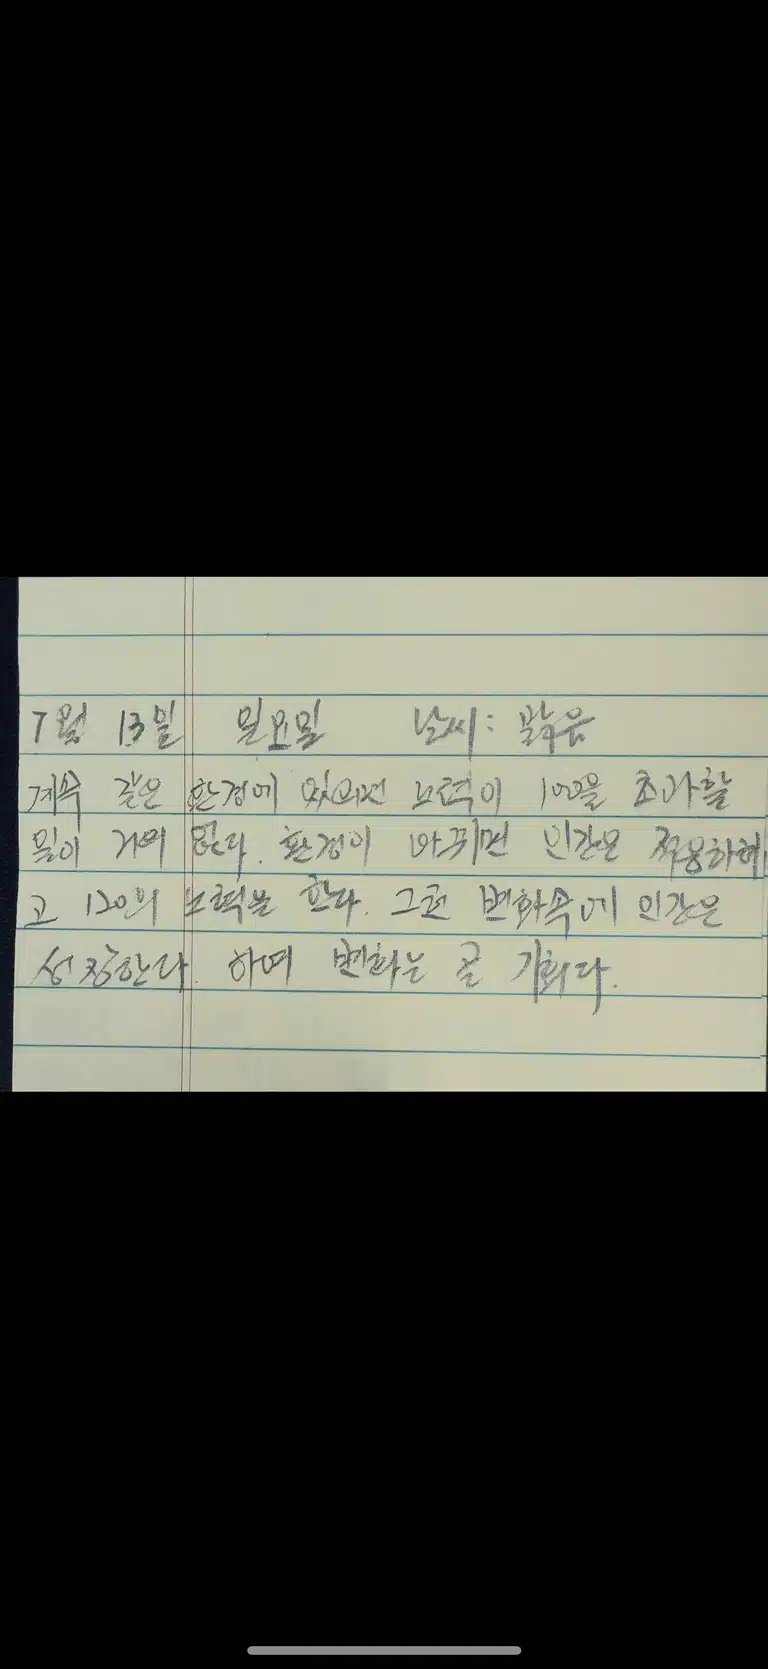 7월 13일 일요일 날씨: 맑음
계속 같은 환경에 있으면 노력이 100을 초과할
일이 거의 없다. 환경이 바뀌면 인간은 적응하려
고 120의 노력을 한다. 그런 변화속에 인간은
성장한다. 하여 변화는 곧 기회다.